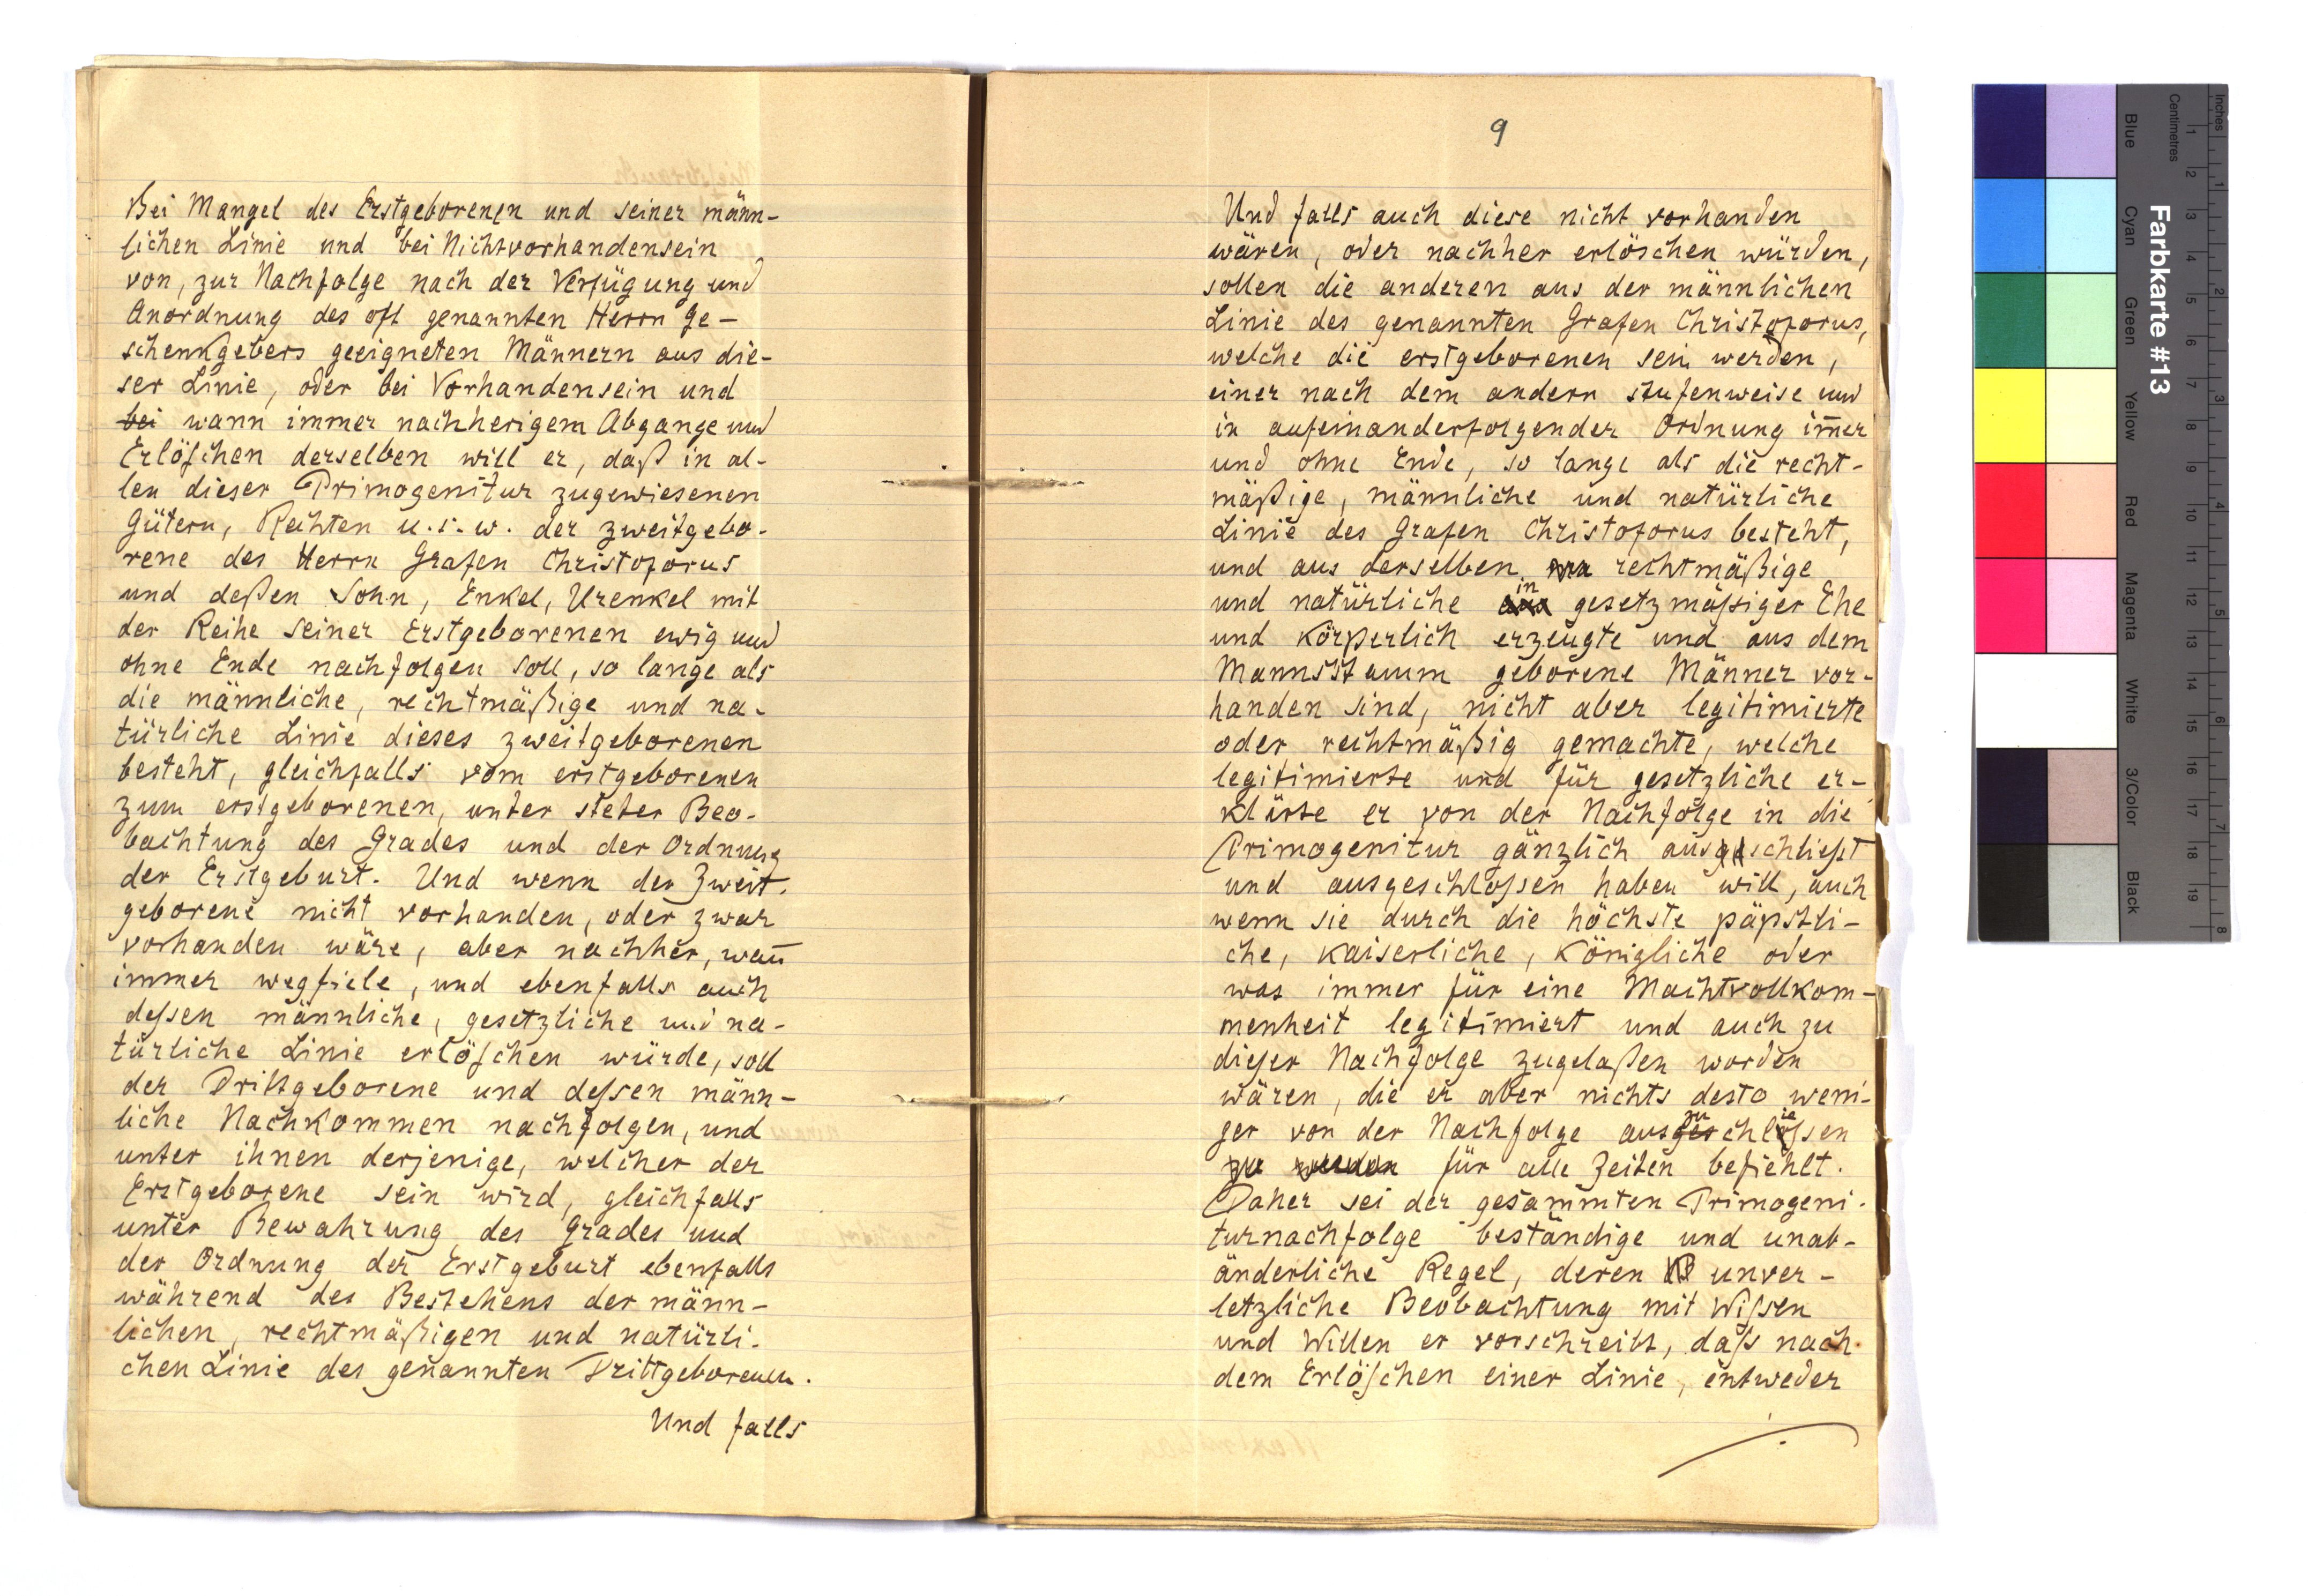 Bei Mangel des Erstgeborenen und seiner männ-
lichen Linie und bei Nichtvorhandensein
von, zur Nachfolge nach der Verfügung und
Anordnung des oft genannten Herrn Ge-
schenkgebers geeigneten Männern aus die-
ser Linie, oder bei Vorhandensein und
bei wann immer nachherigem Abgange und
Erlöschen derselben will er, daß in al-
len dieser Primogenitur zugewiesenen
Gütern, Rechten u.s.w. der zweitgebo-
rene des Herrn Grafen Christoforus
und deßen Sohn, Enkel, Urenkel mit
der Reihe seiner Erstgeborenen ewig und
ohne Ende nachfolgen soll, so lange als
die männliche, rechtmäßige und na-
türliche Linie dieses zweitgeborenen
besteht, gleichfalls vom erstgeborenen
zum erstgeborenen, unter steter Beo-
bachtung des Grades und der Ordnung
der Erstgeburt. Und wenn der Zweit-
geborene nicht vorhanden, oder zwar
vorhanden wäre, aber nachher, wan̄
immer wegfiele, und ebenfalls auch
dessen männliche, gesetzliche und na-
türliche Linie erlöschen würde, soll
der Drittgeborene und dessen männ-
liche Nachkommen nachfolgen, und
unter ihnen derjenige, welcher der
Erstgeborene sein wird, gleichfalls
unter Bewahrung des Grades und
der Ordnung der Erstgeburt ebenfalls
während des Bestehens der männ-
lichen, rechtmäßigen und natürli-
chen Linie des genannten Drittgeborenen.
Und falls
9
Und falls auch diese nicht vorhanden
wären, oder nachher erlöschen würden,
sollen die anderen aus der männlichen
Linie des genannten Grafen Christoforus,
welche die erstgeborenen sein werden,
einer nach dem andern stufenweise und
in aufeinanderfolgender Ordnung im̄er
und ohne Ende, so lange als die recht-
mäßige, männliche und natürliche
Linie des Grafen Christoforus besteht,
und aus derselben rechtmäßige
und natürliche in gesetzmässiger Ehe
und körperlich erzeugte und aus dem
Mannsstamm geborene Männer vor-
handen sind, nicht aber legitimierte
oder rechtmäßig gemachte, welche
legitimierte und für gesetzliche er-
klärte er von der Nachfolge in die
Primogenitur gänzlich ausschließt
und ausgeschlossen haben will, auch
wenn sie durch die höchste päpstli-
che, kaiserliche, königliche oder
was immer für eine Machtvollkom-
menheit legitimiert und auch zu
dieser Nachfolge zugelaßen worden
wären, die er aber nichts desto weni-
ger von der Nachfolge auszuschliessen
zu werden für alle Zeiten befiehlt.
Daher sei der gesammten Primogeni-
turnachfolge beständige und unab-
änderliche Regel, deren unver-
letzliche Beobachtung mit Wissen
und Willen er vorschreibt, dass nach
dem Erlöschen einer Linie, entweder
Farbkarte #13
Blue Cyan Green Yellow Red Magenta White 3/Color Black
Centimetres 1 2 3 4 5 6 7 8 9 10 11 12 13 14 15 16 17 18 19
Inches 1 2 3 4 5 6 7 8